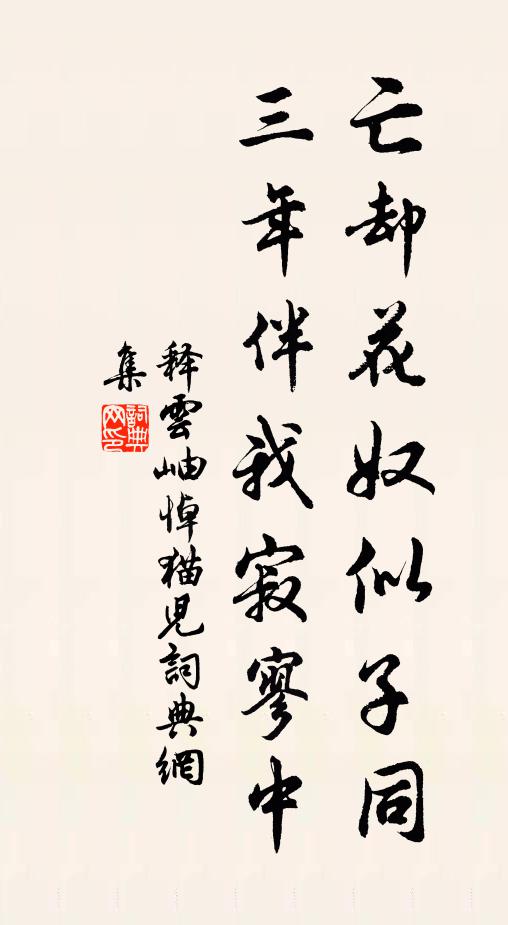 亡却花奴似子同
三年伴我寂寥中
释雲岫悼猫児詞典網
集
詞典
网印